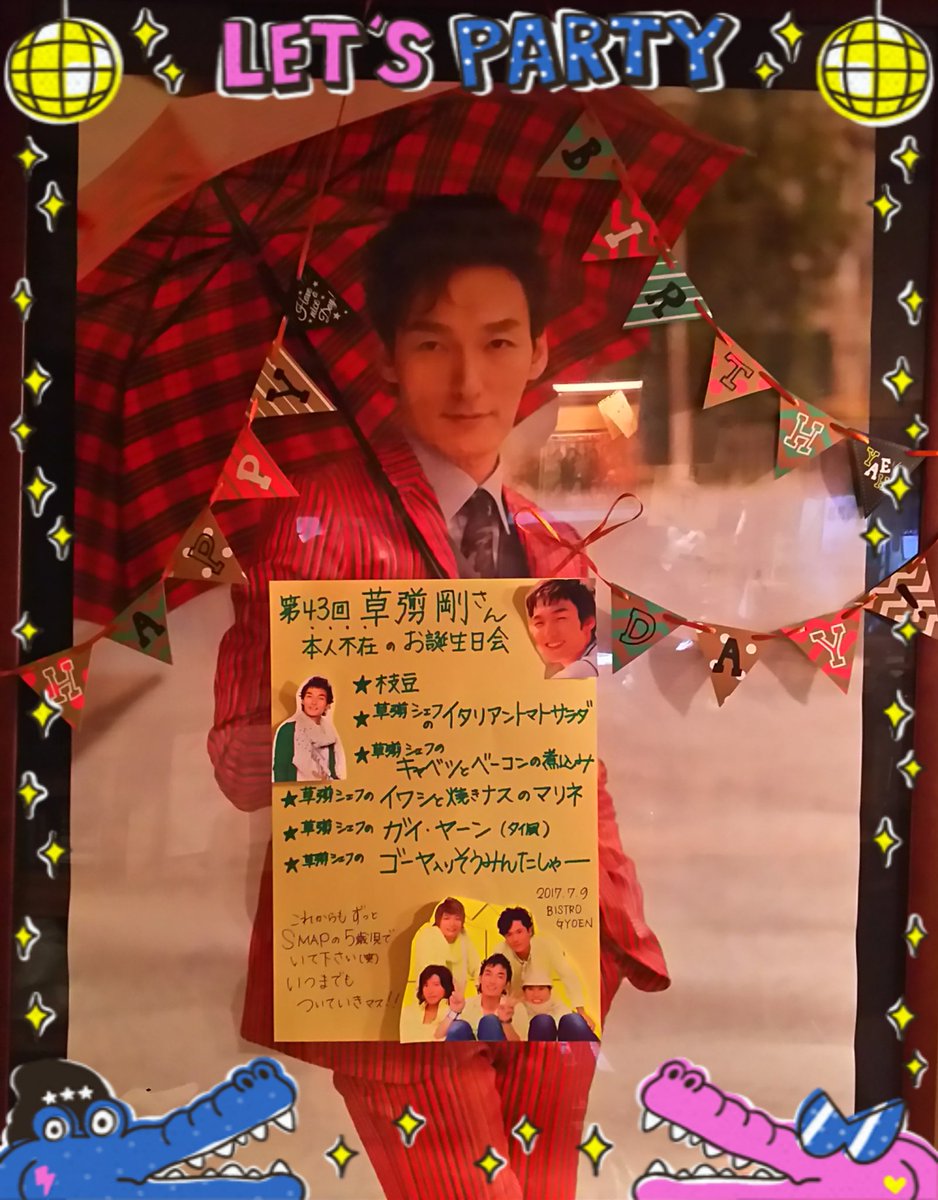 LET'S PARTY
Have a nice Day!
HAPPY
BIRTH
YEAH
DAY!
第43回 草彅剛さん
本人不在のお誕生日会
★枝豆
★草彅シェフのイタリアントマトサラダ
★草彅シェフの
キャベツとベーコンの煮込み
★草彅シェフの イワシと焼きナスのマリネ
★草彅シェフの ガイ・ヤーン(タイ風)
★草彅シェフの ゴーヤ入りそうみんたしゃー
2017.7.9
BISTRO
GYOEN
これからもずっと
SMAPの5歳児で
いて下さい(笑)
いつまでも
ついていきマス!!